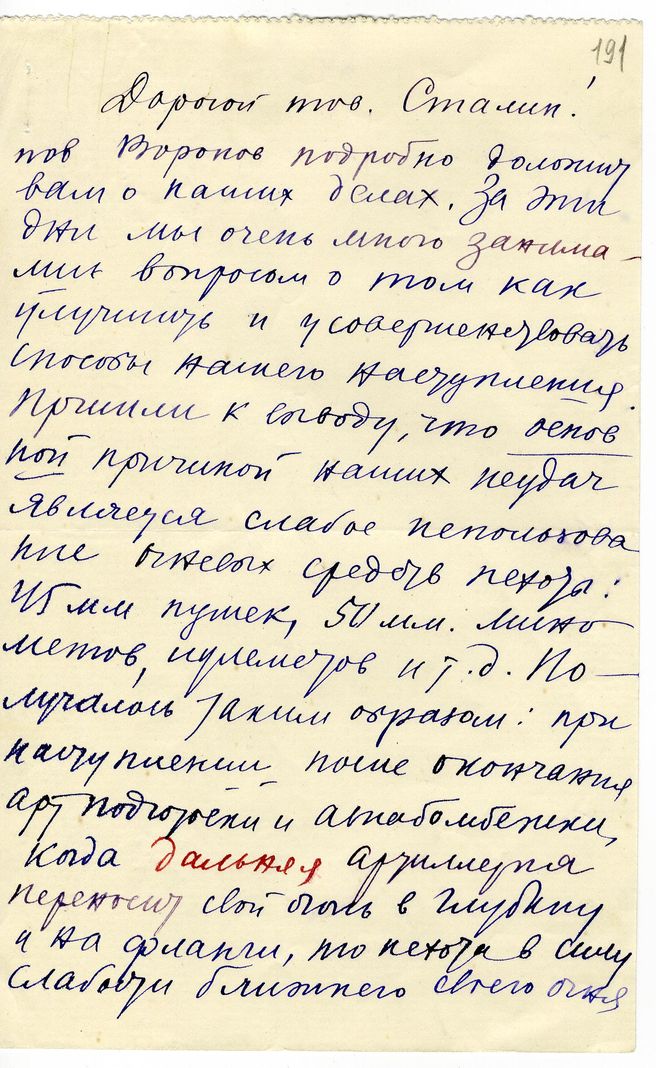 191
Дорогой тов. Сталин!
тов Воронов подробно доложит
вам о наших делах. За эти
дни мы очень много занима-
лись вопросом о том как
улучшить и усовершенствовать
способы нашего наступления.
Пришли к выводу, что основ
ной причиной наших неудач
является слабое использова
ние огневых средств пехоты:
45 мм пушек, 50 мм. мино
метов, пулеметов и т.д. По-
лучалось таким образом: при
наступлении после окончания
артподготовки и авиабомбежки,
когда дальняя артиллерия
переносит свой огонь в глубину
и на фланги, то пехота в силу
слабости ближнего своего огня